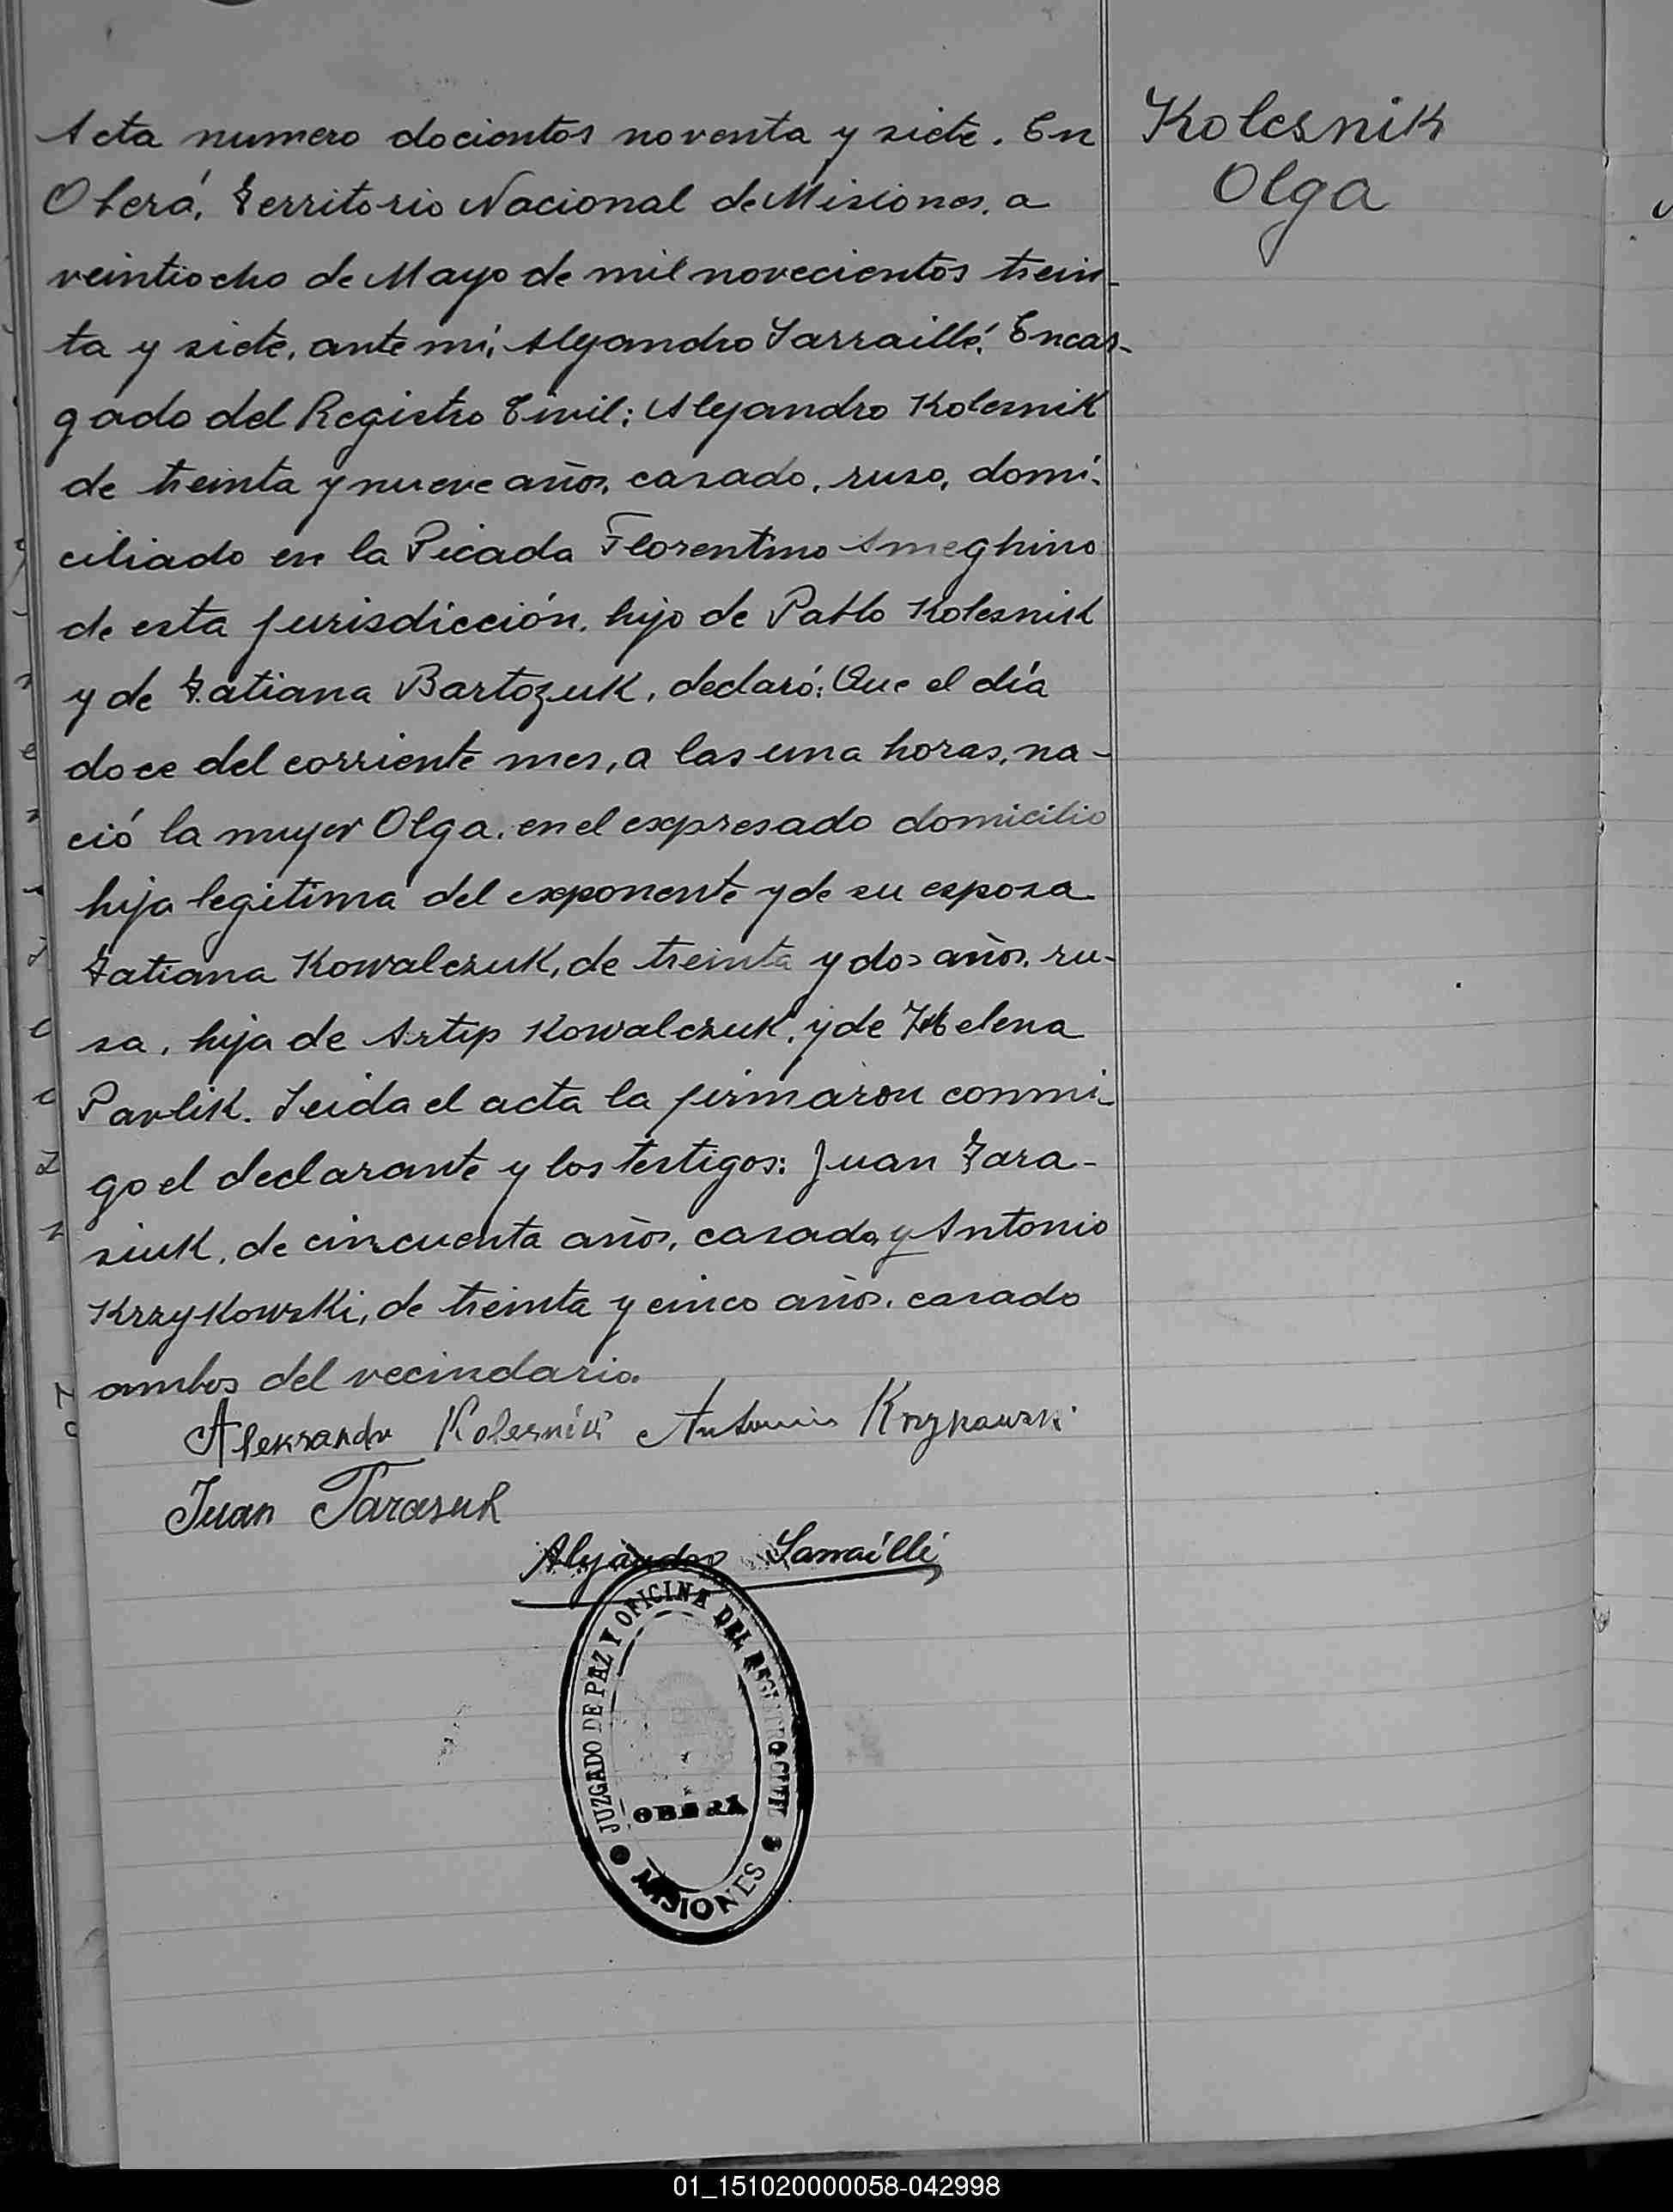 Kolesnik
Olga
Acta numero docientos noventa y siete. En
Oberá, Territorio Nacional de Misiones, a
veintiocho de Mayo de mil novecientos trein-
ta y siete, ante mí, Alejandro Sarraillé, Encar-
gado del Registro Civil; Alejandro Kolesnik
de treinta y nueve años, casado, ruso, domi-
ciliado en la Picada Florentino Ameghino
de esta jurisdicción, hijo de Pablo Kolesnik
y de Tatiana Bartozuk, declaró: Que el día
doce del corriente mes, a las una horas, na-
ció la mujer Olga, en el expresado domicilio
hija legitima del exponente y de su esposa
Tatiana Kowalczuk, de treinta y dos años, ru-
sa, hija de Artip Kowalczuk, y de Helena
Pavlik. Leida el acta la firmaron conmi-
go el declarante y los testigos: Juan Tara-
siuk, de cincuenta años, casado, y Antonio
Krzykowski, de treinta y cinco años, casado
ambos del vecindario.
Aleksandr Kolesnik Antonio Krzykowski
Juan Tarasuk
Alejandro Sarraillé
JUZGADO DE PAZ Y OFICINA DEL REGISTRO CIVIL
OBERA
MISIONES
01_151020000058-042998